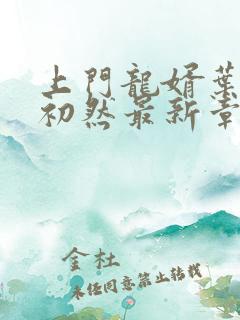 上門龍婿葉
初然最新章
金杜
未经同意禁止转载